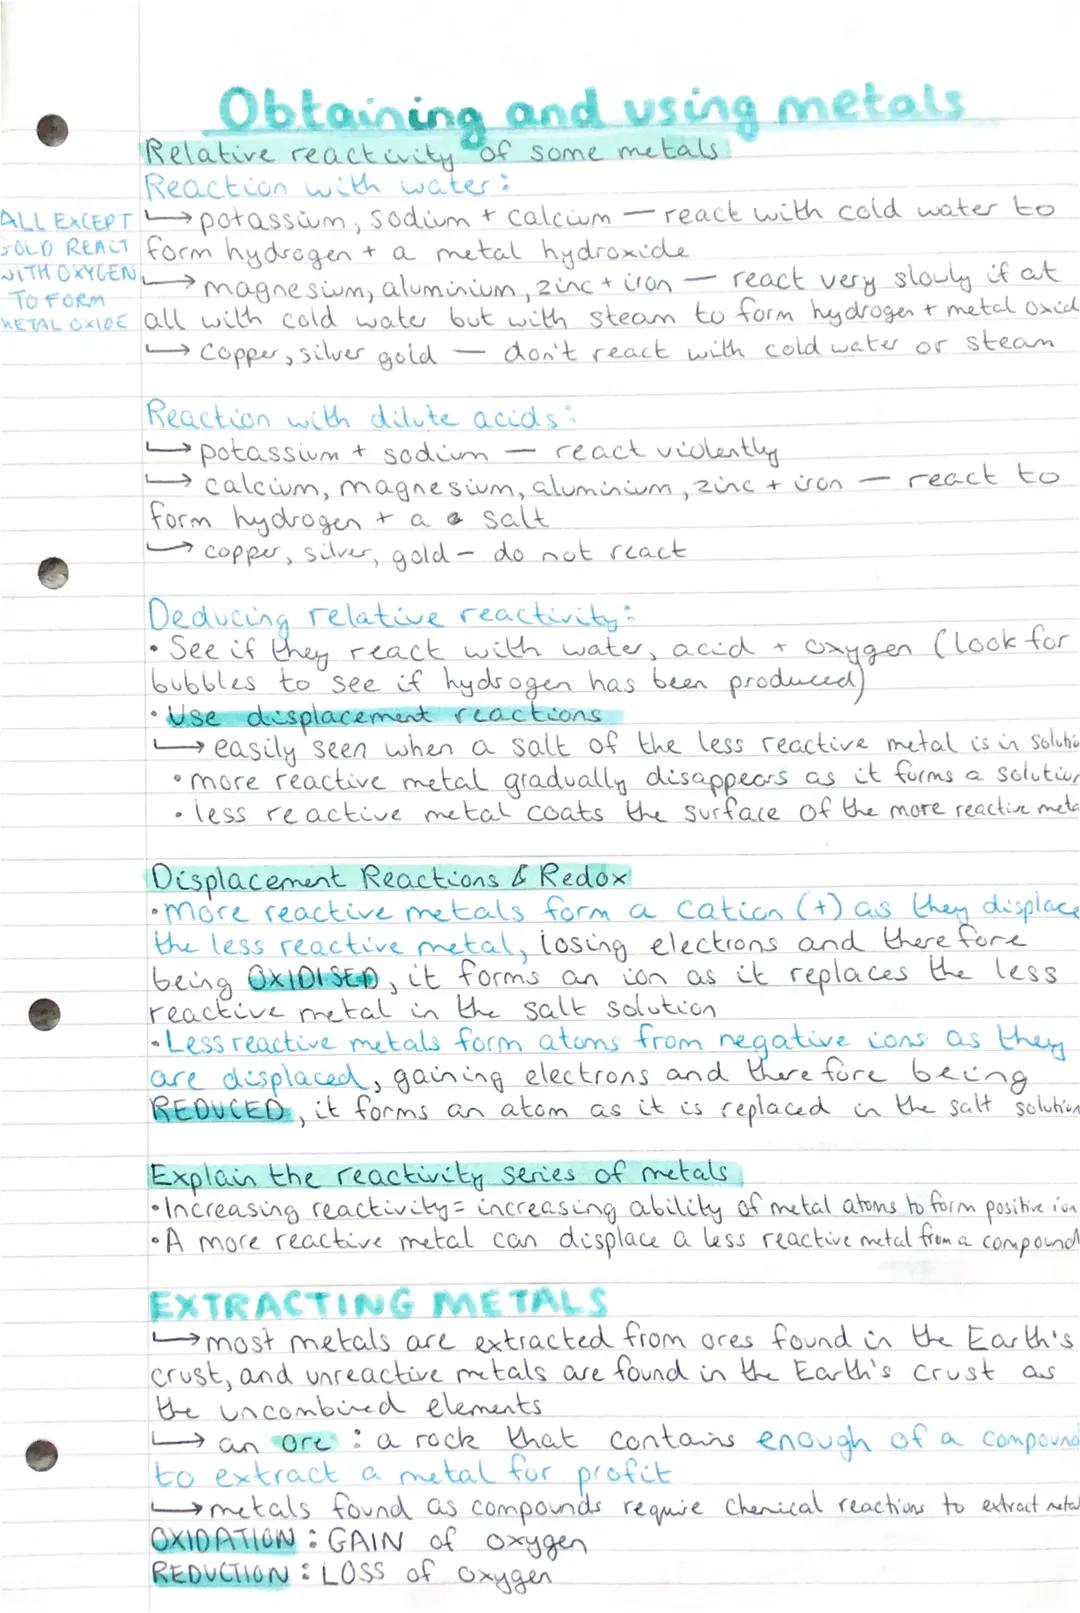 Obtaining and using metals
Relative reactivity of some metals
Reaction with water:
↳ potassium, sodium + calcium — react with cold water to
form hydrogen + a metal hydroxide
↳ magnesium, aluminium, zinc + iron — react very slowly if at
all with cold water but with steam to form hydrogen + metal oxid
↳ copper, silver gold — don't react with cold water or steam
ALL EXCEPT
GOLD REACT
WITH OXYGEN
TO FORM
METAL OXIDE
Reaction with dilute acids:
↳ potassium + sodium — react violently
↳ calcium, magnesium, aluminium, zinc + iron — react to
form hydrogen + a salt
↳ copper, silver, gold — do not react
Deducing relative reactivity:
• See if they react with water, acid + oxygen (look for
bubbles to see if hydrogen has been produced)
• Use displacement reactions
↳ easily seen when a salt of the less reactive metal is in solutio
• more reactive metal gradually disappears as it forms a solution
• less reactive metal coats the surface of the more reactive meta
Displacement Reactions & Redox
• More reactive metals form a cation (+) as they displace
the less reactive metal, losing electrons and therefore
being OXIDISED, it forms an ion as it replaces the less
reactive metal in the salt solution
• Less reactive metals form atoms from negative ions as they
are displaced, gaining electrons and therefore being
REDUCED, it forms an atom as it is replaced in the salt solution
Explain the reactivity series of metals
• Increasing reactivity = increasing ability of metal atoms to form positive ion
• A more reactive metal can displace a less reactive metal from a compound
EXTRACTING METALS
↳ most metals are extracted from ores found in the Earth's
crust, and unreactive metals are found in the Earth's crust as
the uncombined elements
↳ an ore : a rock that contains enough of a compound
to extract a metal for profit
↳ metals found as compounds require chemical reactions to extract metal
OXIDATION : GAIN of oxygen
REDUCTION : LOSS of oxygen